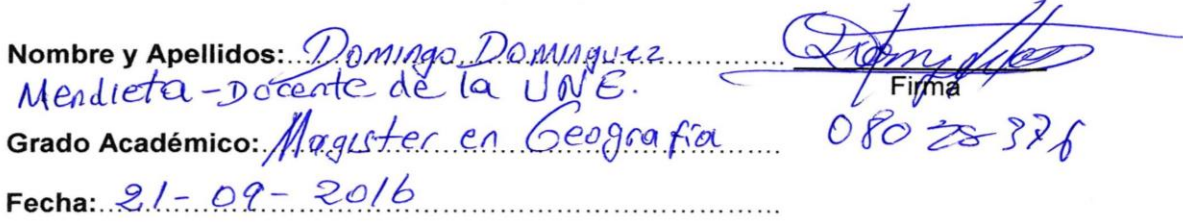 Nombre y Apellidos: Domingo Dominguez
Mendieta - Docente de la UNE.
Firma
Grado Académico: Magister en Geografía
Fecha: 21- 09- 2016